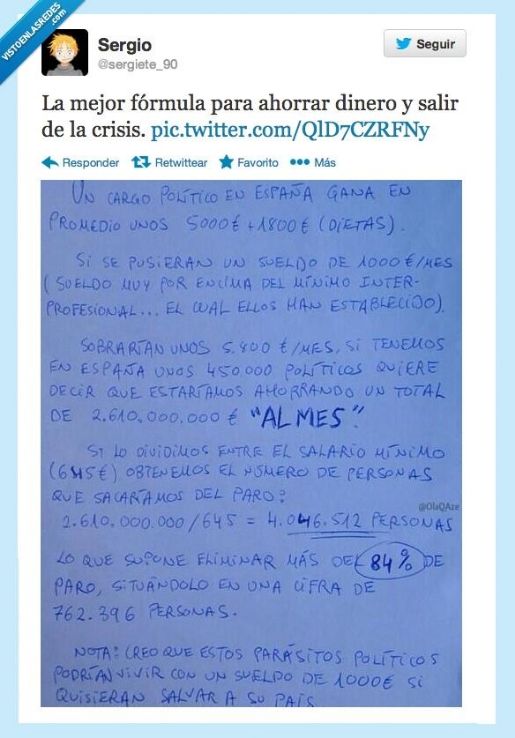 VISTOENLASREDES
.com
Sergio
@sergiete_90
Seguir
La mejor fórmula para ahorrar dinero y salir
de la crisis. pic.twitter.com/QlD7CZRFNy
Responder Retwittear Favorito Más
UN CARGO POLÍTICO EN ESPAÑA GANA EN
PROMEDIO UNOS 5000€ + 1800€ (DIETAS).
SI SE PUSIERAN UN SUELDO DE 1000€/MES
(SUELDO MUY POR ENCIMA DEL MÍNIMO INTER-
PROFESIONAL... EL CUAL ELLOS HAN ESTABLECIDO).
SOBRARÍAN UNOS 5.800€/MES, SI TENEMOS
EN ESPAÑA UNOS 450.000 POLÍTICOS QUIERE
DECIR QUE ESTARÍAMOS AHORRANDO UN TOTAL
DE 2.610.000.000€ "AL MES".
SI LO DIVIDIMOS ENTRE EL SALARIO MÍNIMO
(645€) OBTENEMOS EL NÚMERO DE PERSONAS
QUE SACARÍAMOS DEL PARO:
@OlaQAze
2.610.000.000/645 = 4.046.512 PERSONAS
LO QUE SUPONE ELIMINAR MÁS DEL 84% DE
PARO, SITUÁNDOLO EN UNA CIFRA DE
762.396 PERSONAS.
NOTA: CREO QUE ESTOS PARÁSITOS POLÍTICOS
PODRÍAN VIVIR CON UN SUELDO DE 1000€ SI
QUISIERAN SALVAR A SU PAÍS